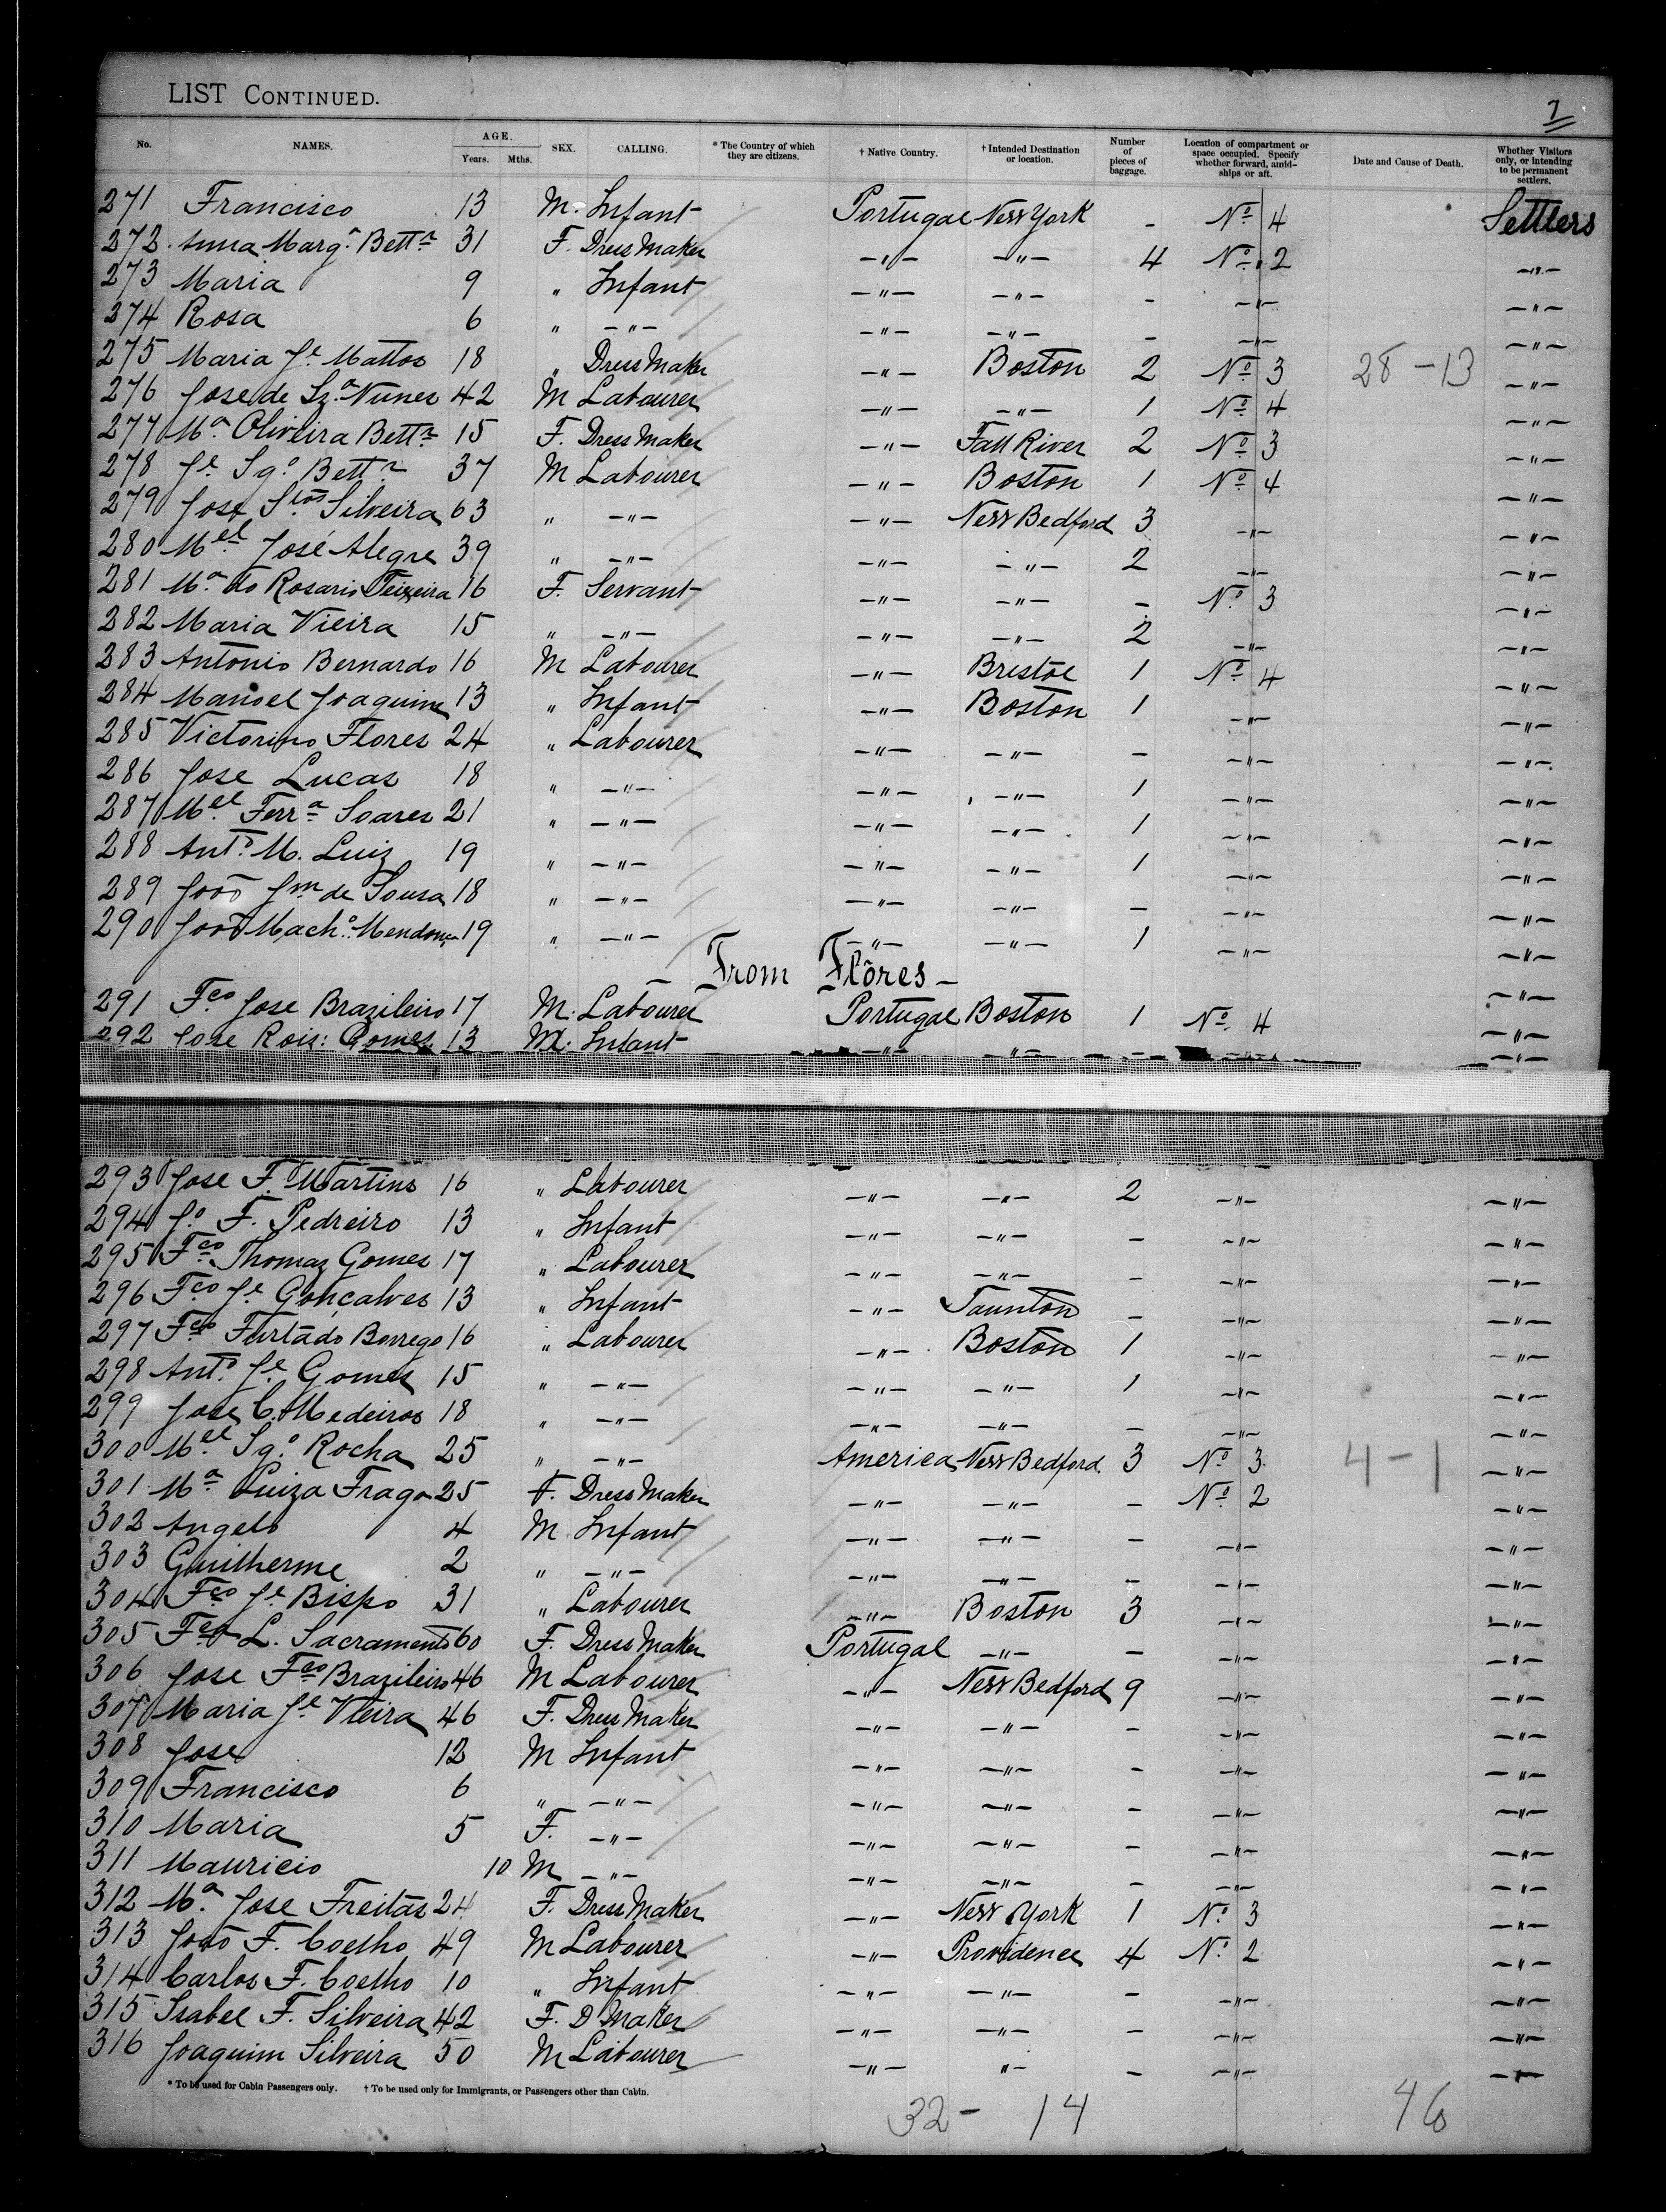 LIST CONTINUED.
7
No. NAMES. AGE. Years. Mths. SEX. CALLING. * The Country of which they are citizens. † Native Country. † Intended Destination or location. Number of pieces of baggage. Location of compartment or space occupied. Specify whether forward, amidships or aft. Date and Cause of Death. Whether Visitors only, or intending to be permanent settlers.
271 Francisco 13 M. Infant Portugal New York - No 4 Settlers
272. Anna Marg.a Bett.a 31 F. Dress Maker -"- -"- 4 No 2 -"-
273 Maria 9 " Infant -"- -"- - -"- -"-
274 Rosa 6 " -"- -"- -"- - -"- -"-
275 Maria Je Mattos 18 " Dress Maker -"- Boston 2 No 3 28-13 -"-
276 Jose de Sz.a Nunes 42 M Labourer -"- -"- 1 No 4 -"-
277 M.a Oliveira Bett.a 15 F. Dress Maker -"- Fall River 2 No 3 -"-
278 Je Sg.o Bett.a 37 M Labourer -"- Boston 1 No 4 -"-
279 Jose Stos Silveira 63 " -"- -"- New Bedford 3 -"- -"-
280 Mel José Alegre 39 " -"- -"- -"- 2 -"- -"-
281 M.a do Rosario Teixeira 16 F. Servant -"- -"- - No 3 -"-
282 Maria Vieira 15 " -"- -"- -"- 2 -"- -"-
283 Antonio Bernardo 16 M Labourer -"- Bristol 1 No 4 -"-
284 Manoel Joaquim 13 " Infant -"- Boston 1 -"- -"-
285 Victorino Flores 24 " Labourer -"- -"- - -"- -"-
286 Jose Lucas 18 " -"- -"- -"- 1 -"- -"-
287 Mel Ferr.a Soares 21 " -"- -"- -"- 1 -"- -"-
288 Ant.o M. Luiz 19 " -"- -"- -"- 1 -"- -"-
289 Joõo Jm de Sousa 18 " -"- -"- -"- - -"- -"-
290 Joõo Mach.o Mendonça 19 " -"- -"- -"- 1 -"- -"-
- From Flôres -
291 Fco Jose Brazileiro 17 M. Labourer Portugal Boston 1 No 4 -"-
292 Jose Rois: Gomes 13 M. Infant -"- -"- - -"- -"-
293 Jose F. Martins 16 " Labourer -"- -"- 2 -"- -"-
294 J.o F. Pedreiro 13 " Infant -"- -"- - -"- -"-
295 Fco Thomaz Gomes 17 " Labourer -"- -"- - -"- -"-
296 Fco Je Gonçalves 13 " Infant -"- Taunton - -"- -"-
297 Fco Furtado Borrego 16 " Labourer -"- Boston 1 -"- -"-
298 Ant.o Je Gomes 15 " -"- -"- -"- 1 -"- -"-
299 Jose C. Medeiros 18 " -"- -"- -"- - -"- -"-
300 Mel Sg.o Rocha 25 " -"- America New Bedford 3 No 3 4-1 -"-
301 M.a Luiza Fraga 25 F. Dress Maker -"- -"- - No 2 -"-
302 Angelo 4 M Infant -"- -"- - -"- -"-
303 Guilherme 2 " -"- -"- -"- - -"- -"-
304 Fco Je Bispo 31 " Labourer -"- Boston 3 -"- -"-
305 Fca L. Sacramento 60 F. Dress Maker Portugal -"- - -"- -"-
306 Jose Fco Brazileiro 46 M Labourer -"- New Bedford 9 -"- -"-
307 Maria Je Vieira 46 F. Dress Maker -"- -"- - -"- -"-
308 Jose 12 M Infant -"- -"- - -"- -"-
309 Francisco 6 " -"- -"- -"- - -"- -"-
310 Maria 5 F. -"- -"- -"- - -"- -"-
311 Mauricio 10 M -"- -"- -"- - -"- -"-
312 M.a Jose Freitas 24 F. Dress Maker -"- New York 1 No 3 -"-
313 Joõo F. Coelho 49 M Labourer -"- Providence 4 No 2 -"-
314 Carlos F. Coelho 10 " Infant -"- -"- - -"- -"-
315 Isabel F. Silveira 42 F. D Maker -"- -"- - -"- -"-
316 Joaquim Silveira 50 M Labourer -"- "- - -"- -"-
* To be used for Cabin Passengers only. † To be used only for Immigrants, or Passengers other than Cabin.
32- 14 46